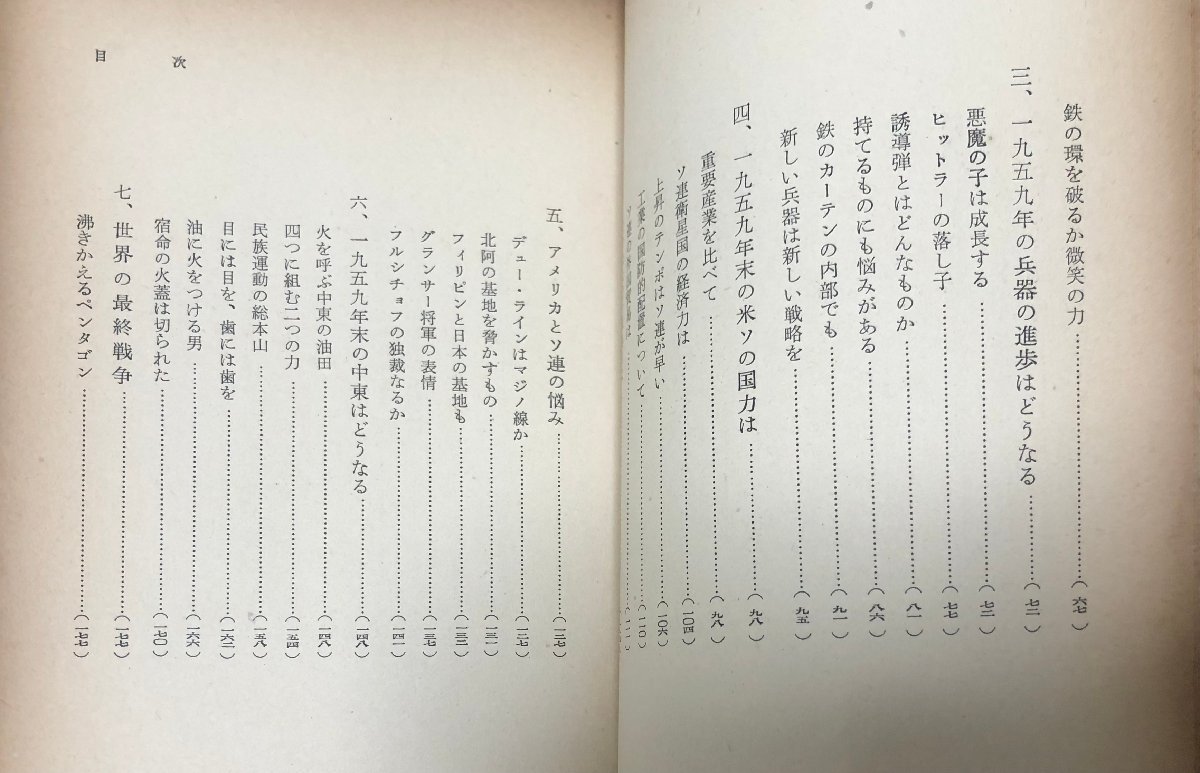 鉄の環を破るか微笑の力……………(六七)
三、一九五九年の兵器の進歩はどうなる……………(七二)
悪魔の子は成長する……………(七二)
ヒットラーの落し子……………(七七)
誘導弾とはどんなものか……………(八一)
持てるものにも悩みがある……………(八六)
鉄のカーテンの内部でも……………(九一)
新しい兵器は新しい戦略を……………(九五)
四、一九五九年末の米ソの国力は……………(九八)
重要産業を比べて……………(九八)
ソ連衛星国の経済力は……………(一〇四)
上昇のテンポはソ連が早い……………(一〇六)
工業の国防的配置について……………(一一〇)
目次
五、アメリカとソ連の悩み……………(一二七)
デュー・ラインはマジノ線か……………(一二七)
北阿の基地を脅かすもの……………(一三一)
フィリピンと日本の基地も……………(一三二)
グランサー将軍の表情……………(一三七)
フルシチョフの独裁なるか……………(一四一)
六、一九五九年末の中東はどうなる……………(一四八)
火を呼ぶ中東の油田……………(一四八)
四つに組む二つの力……………(一五四)
民族運動の総本山……………(一五八)
目には目を、歯には歯を……………(一六二)
油に火をつける男……………(一六六)
宿命の火蓋は切られた……………(一七〇)
七、世界の最終戦争……………(一七七)
沸きかえるペンタゴン……………(一七七)